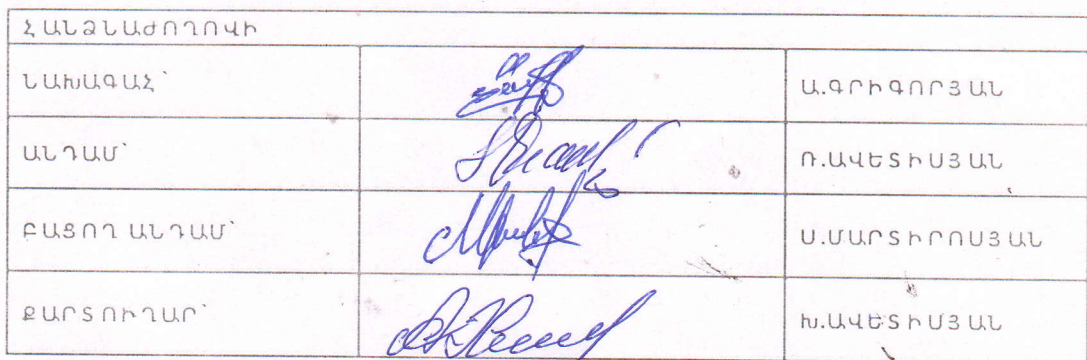 ՀԱՆՁՆԱԺՈՂՈՎԻ
ՆԱԽԱԳԱՀ՝ Ա.ԳՐԻԳՈՐՅԱՆ
ԱՆԴԱՄ՝ Ռ.ԱՎԵՏԻՍՅԱՆ
ԲԱՑՈՂ ԱՆԴԱՄ՝ Ս.ՄԱՐՏԻՐՈՍՅԱՆ
ՔԱՐՏՈՒՂԱՐ՝ Խ.ԱՎԵՏԻՍՅԱՆ